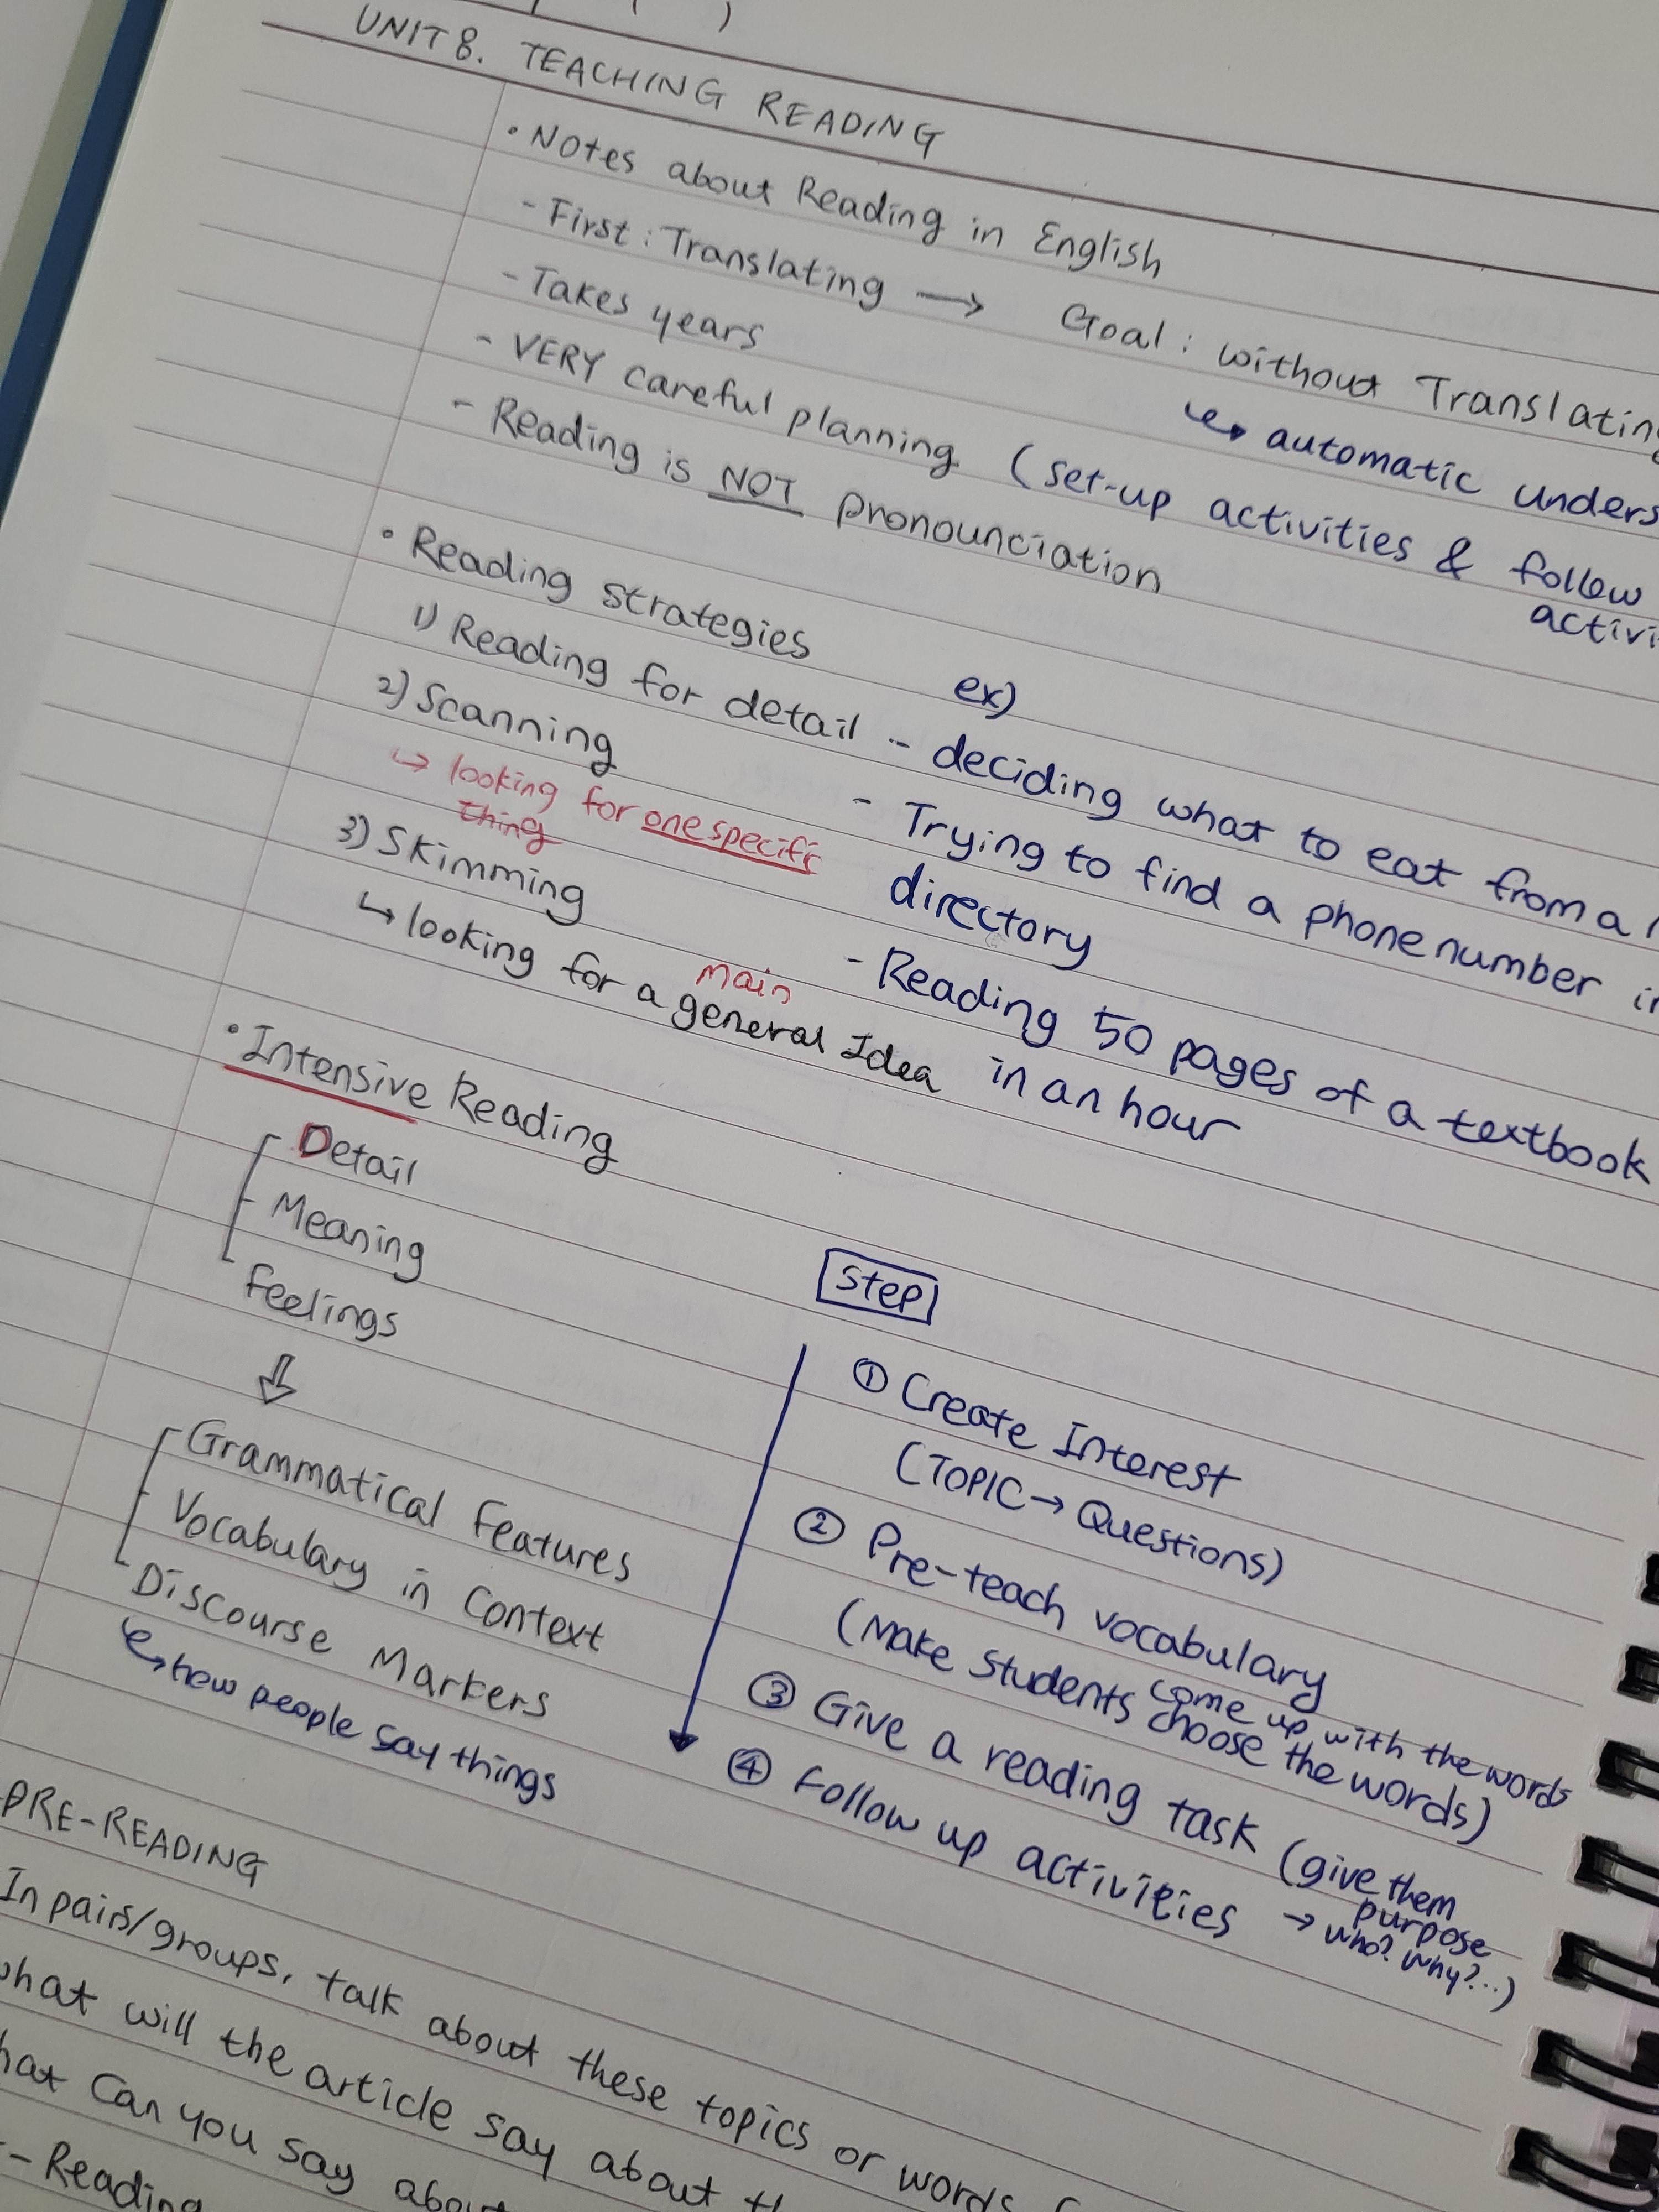 UNIT 8. TEACHING READING
• Notes about Reading in English
- First : Translating → Goal : without Translating
↳ automatic unders
- Takes years
- VERY careful planning (set-up activities & follow
activi
- Reading is NOT pronounciation
• Reading strategies
ex)
1) Reading for detail - deciding what to eat from a
2) Scanning - Trying to find a phone number in
directory
↳ looking for one specific
thing
3) Skimming - Reading 50 pages of a textbook
in an hour
↳ looking for a general Idea
main
• Intensive Reading
Detail
Meaning
Feelings
⇓
Grammatical Features
Vocabulary in Context
Discourse Markers
↳ how people say things
Step
① Create Interest
(TOPIC → Questions)
② Pre-teach vocabulary
(Make students choose the words)
come up with the words
③ Give a reading task (give them
purpose
who? why?...)
④ Follow up activities →
PRE-READING
In pairs/groups, talk about these topics or words
hat will the article say about
hat can you say about
- Reading